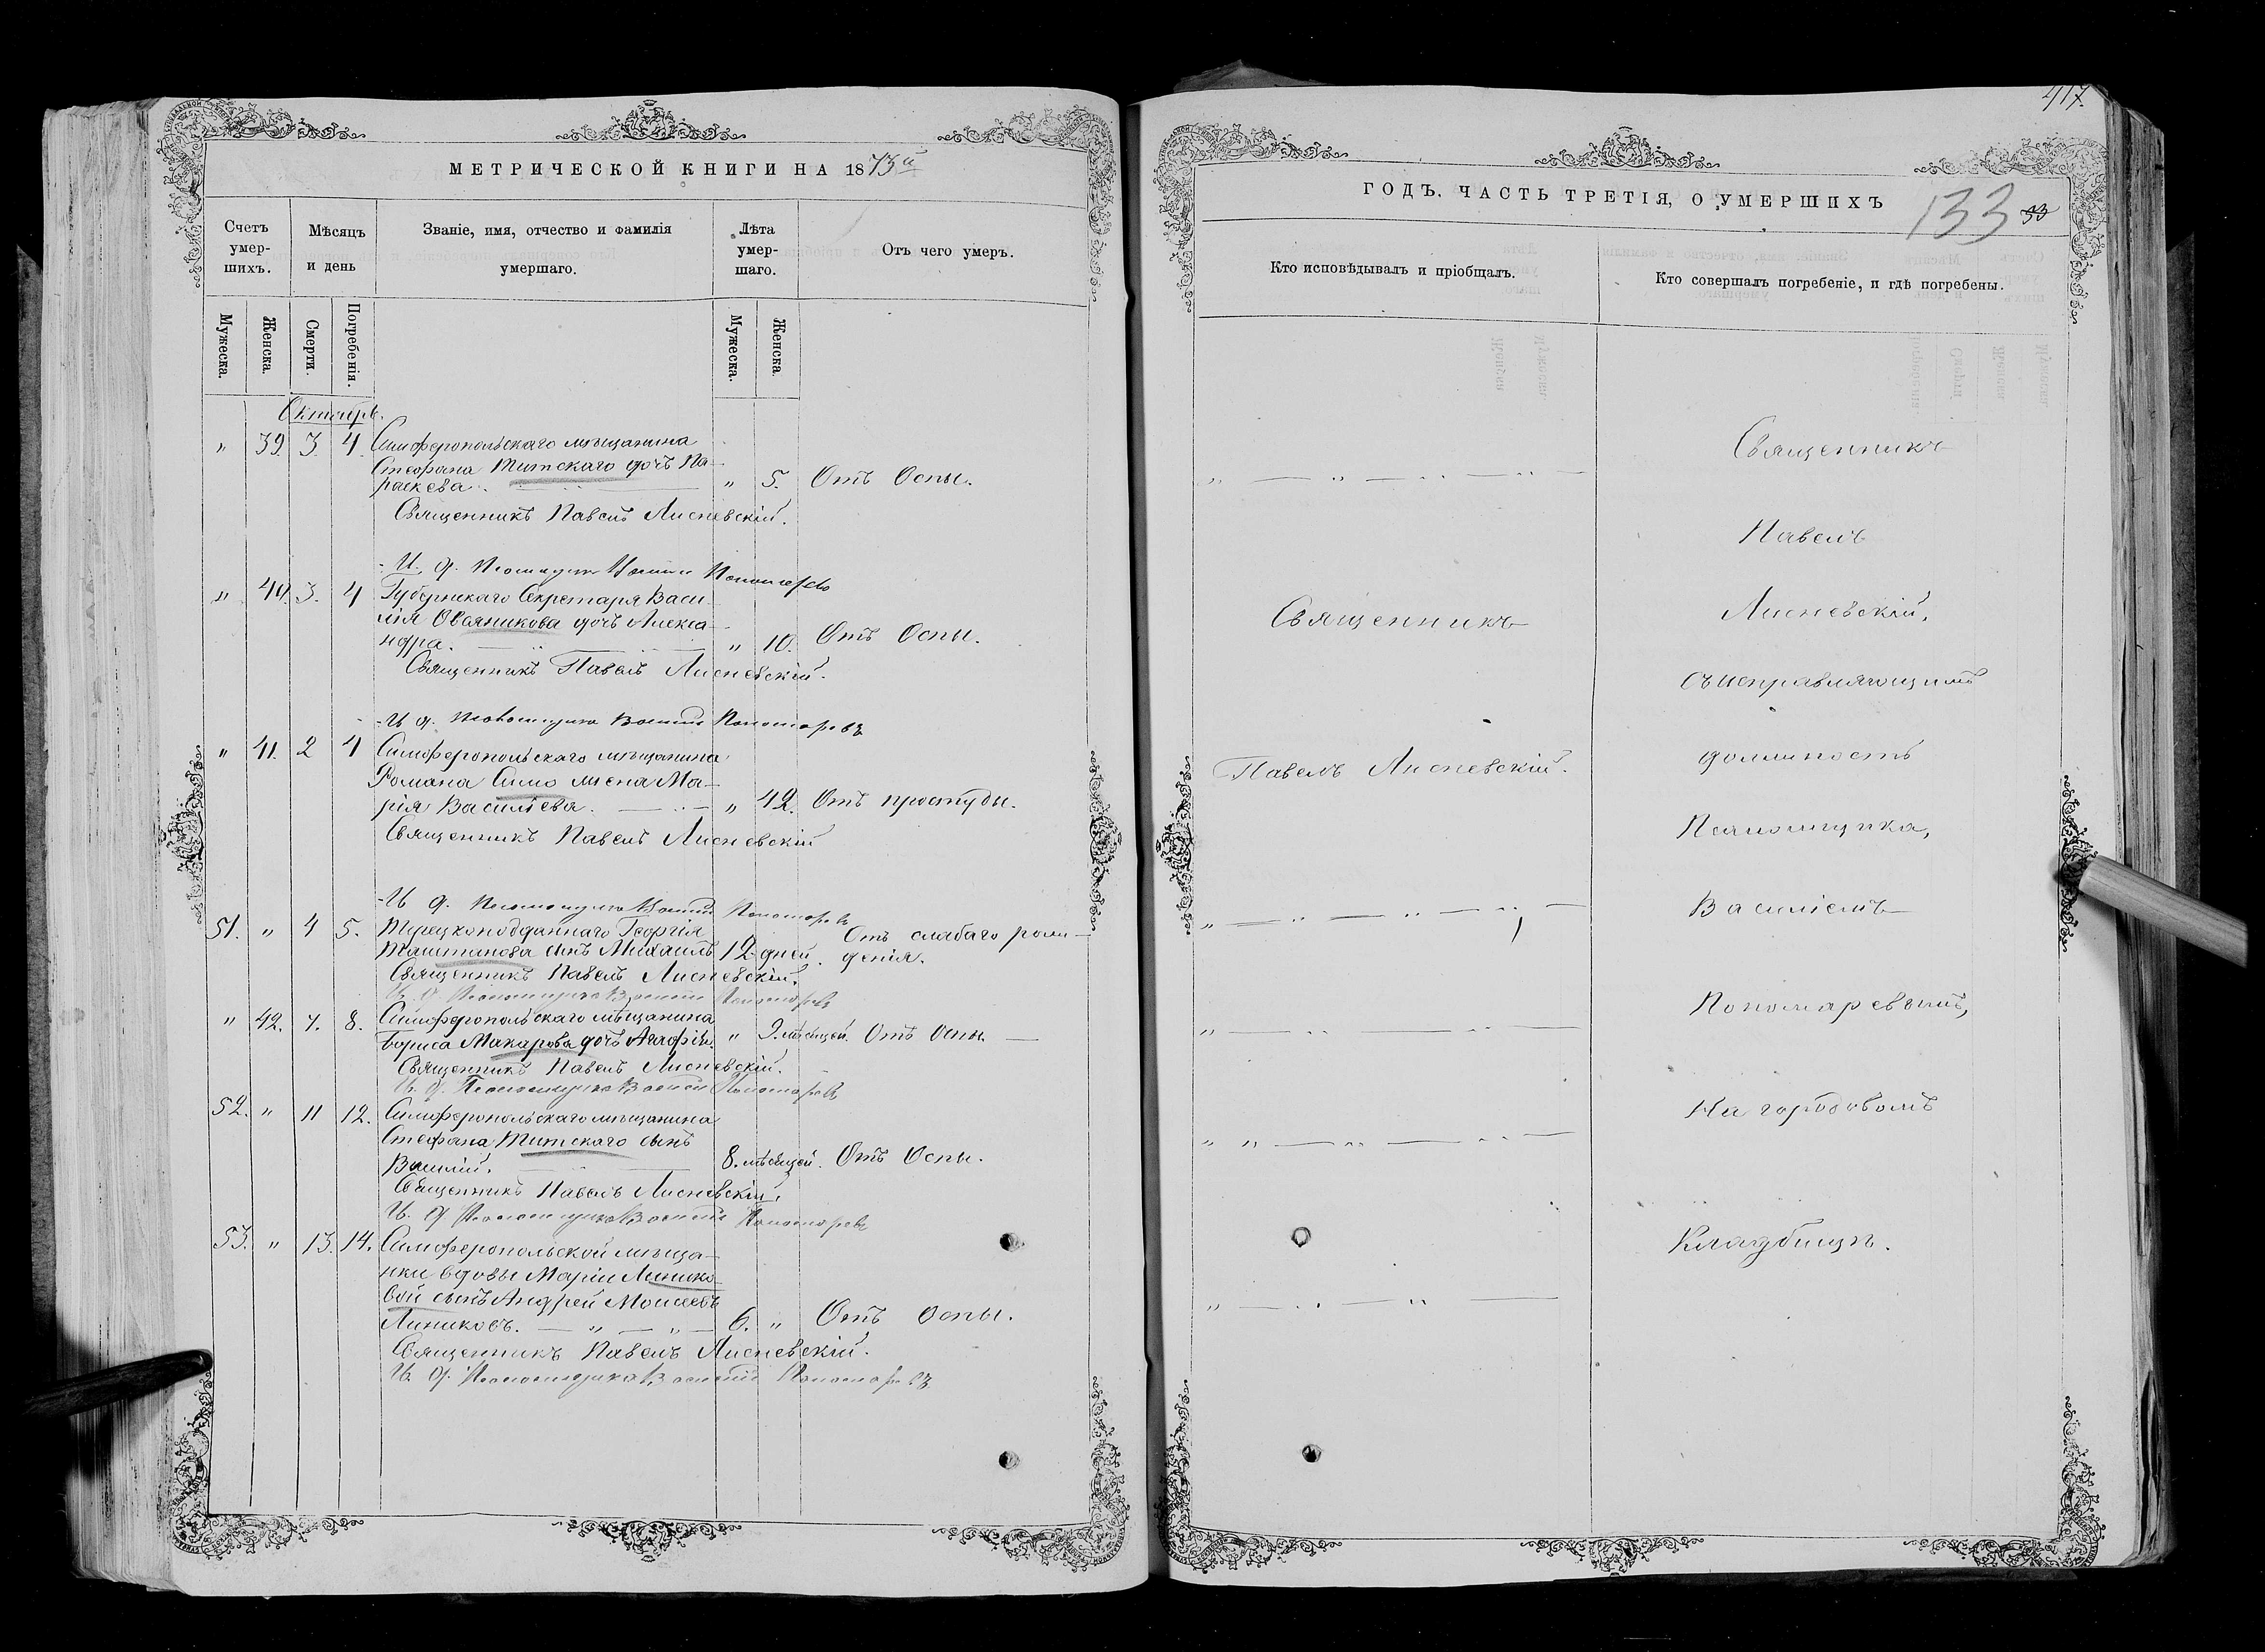 417.
МЕТРИЧЕСКОЙ КНИГИ НА 1873й
Счетъ умер-шихъ.
Мѣсяцъ и день
Званіе, имя, отчество и фамилія умершаго.
Лѣта умер-шаго.
Отъ чего умеръ.
Мужеска.
Женска.
Смерти.
Погребенія.
Мужеска.
Женска.
Октябрь.
" 39. 3. 4. Симферопольскаго мѣщанина
Стефана Титскаго дочь Па-
раскева. " 5. Отъ Оспы.
Священникъ Павелъ Лисневскій.
И. д. Псаломщика Василій Пономаревъ
" 40. 3. 4 Губернскаго Секретаря Васи-
лія Овсяникова дочь Алекса-
ндра. " 10. Отъ Оспы.
Священникъ Павелъ Лисневскій.
И д. Псаломщика Василій Пономаревъ
" 41. 2 4 Симферопольскаго мѣщанина
Романа Симо жена Ма-
рія Васильева. " 42. Отъ простуды.
Священникъ Павелъ Лисневскій
И д. Псаломщика Василій Пономаревъ
51. " 4 5. Турецкоподданнаго Георгія
Таштанова сынъ Михаилъ 12. дней. Отъ слабаго рож-
денія.
Священникъ Павелъ Лисневскій.
И. д. Псаломщика Василій Пономаревъ
" 42. 7. 8. Симферопольскаго мѣщанина
Бориса Макарова дочь Агафія. " 9. мѣсяцей. Отъ Оспы.
Священникъ Павелъ Лисневскій.
И. д. Псаломщика Василій Пономаревъ
52. " 11 12. Симферопольскаго мѣщанина
Стефана Титскаго сынъ
Василій. 8. мѣсяцей. Отъ Оспы.
Священникъ Павелъ Лисневскій.
И. д. Псаломщика Василій Пономаревъ
53. " 13. 14. Симферопольской мѣща-
нки вдовы Маріи Линико-
вой сынъ Андрей Моисеевъ
Линиковъ. 6. " Отъ Оспы.
Священникъ Павелъ Лисневскій.
И. д. Псаломщика Василій Пономаревъ
ГОДЪ. ЧАСТЬ ТРЕТІЯ, О УМЕРШИХЪ
133
Кто исповѣдывалъ и пріобщалъ.
Кто совершалъ погребеніе, и гдѣ погребены.
Священникъ
Павелъ Лисневскій.
Священникъ
Павелъ
Лисневскій,
съ исправляющимъ
должность
Псаломщика,
Василіемъ
Пономаревымъ,
На городовомъ
Кладбищѣ.